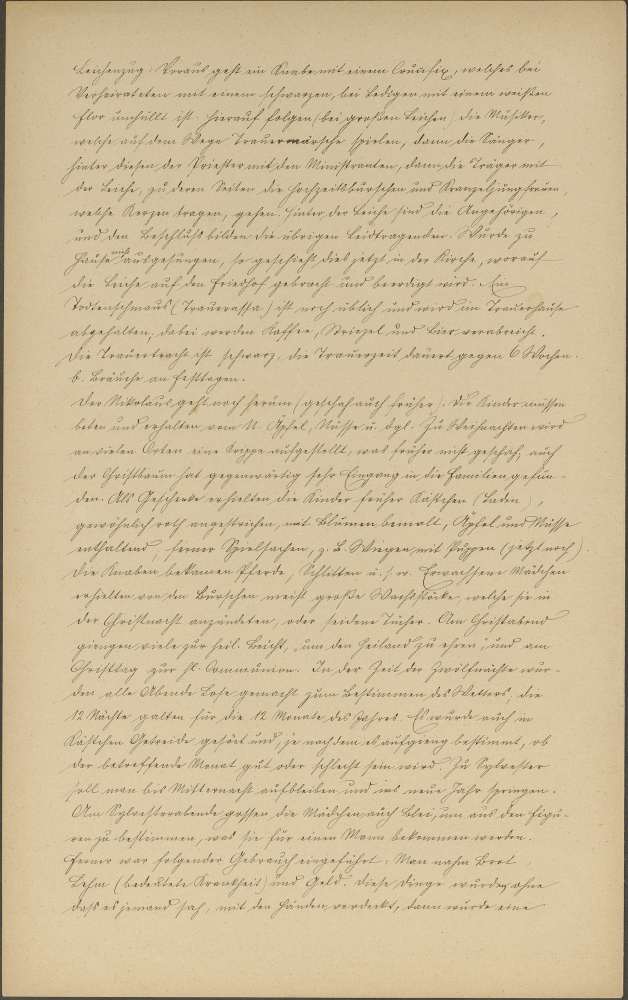 Leichenzug: Voraus geht ein Knabe mit einem Crucifix, welches bei
Verheirateten mit einem schwarzen, bei Ledigen mit einem weißen
Flor umhüllt ist. Hierauf folgen (bei großen Leichen) die Musiker,
welche auf dem Wege Trauermärsche spielen, dann die Sänger,
hinter diesen der Priester mit den Ministranten, dann die Träger mit
der Leiche, zu deren Seiten die Hochzeitsburschen und Kranzeljungfrauen,
welche Kerzen tragen, gehen. Hinter der Leiche sind die Angehörigen,
und den Beschluß bilden die übrigen Leidtragenden. Wurde zu
Hause nicht ausgesungen, so geschieht dies jetzt in der Kirche, worauf
die Leiche auf den Friedhof gebracht und beerdigt wird. Ein
Todtenschmaus (Trauerassa) ist noch üblich und wird im Trauerhause
abgehalten, dabei werden Kaffee, Striezel und Bier verabreicht.
Die Trauertracht ist schwarz, die Trauerzeit dauert gegen 6 Wochen.
b. Bräuche an Festtagen.
Der Nikolaus geht noch herum (geschah auch früher). Die Kinder müssen
beten und erhalten vom N. Äpfel, Nüsse u. dgl. Zu Weihnachten wird
an vielen Orten eine Krippe aufgestellt, was früher nicht geschah, auch
der Christbaum hat gegenwärtig sehr Eingang in die Familien gefun-
den. Als Geschenke erhielten die Kinder früher Kästchen (Laden),
gewöhnlich roth angestrichen, mit Blumen bemalt, Äpfel und Nüsse
enthaltend, ferner Spielsachen, z. B. Wiegen mit Puppen (jetzt noch).
Die Knaben bekamen Pferde, Schlitten u. s. w. Erwachsene Mädchen
erhielten von den Burschen meist große Wachsstöcke, welche sie in
der Christnacht anzündeten, oder seidene Tücher. Am Christabend
giengen viele zur heil. Beicht, „um den Heiland zu ehren", und am
Christtag zur hl. Communion. In der Zeit der Zwölfnächte wur-
den alle Abende Lose gemacht zum Bestimmen des Wetters, die
12 Nächte galten für die 12 Monate des Jahres. Es wurde auch in
Kästchen Getreide gesäet und, je nachdem es aufgieng bestimmt, ob
der betreffende Monat gut oder schlecht sein wird. Zu Sylvester
soll man bis Mitternacht aufbleiben und ins neue Jahr springen.
Am Sylvesterabende gossen die Mädchen auch Blei, um aus den Figu-
ren zu bestimmen, was sie für einen Mann bekommen werden.
Ferner war folgender Gebrauch eingeführt: Man nahm Brot,
Lehm (bedeutete Krankheit) und Geld. Diese Dinge wurden, ohne
daß es jemand sah, mit den Händen verdeckt, dann wurde eine